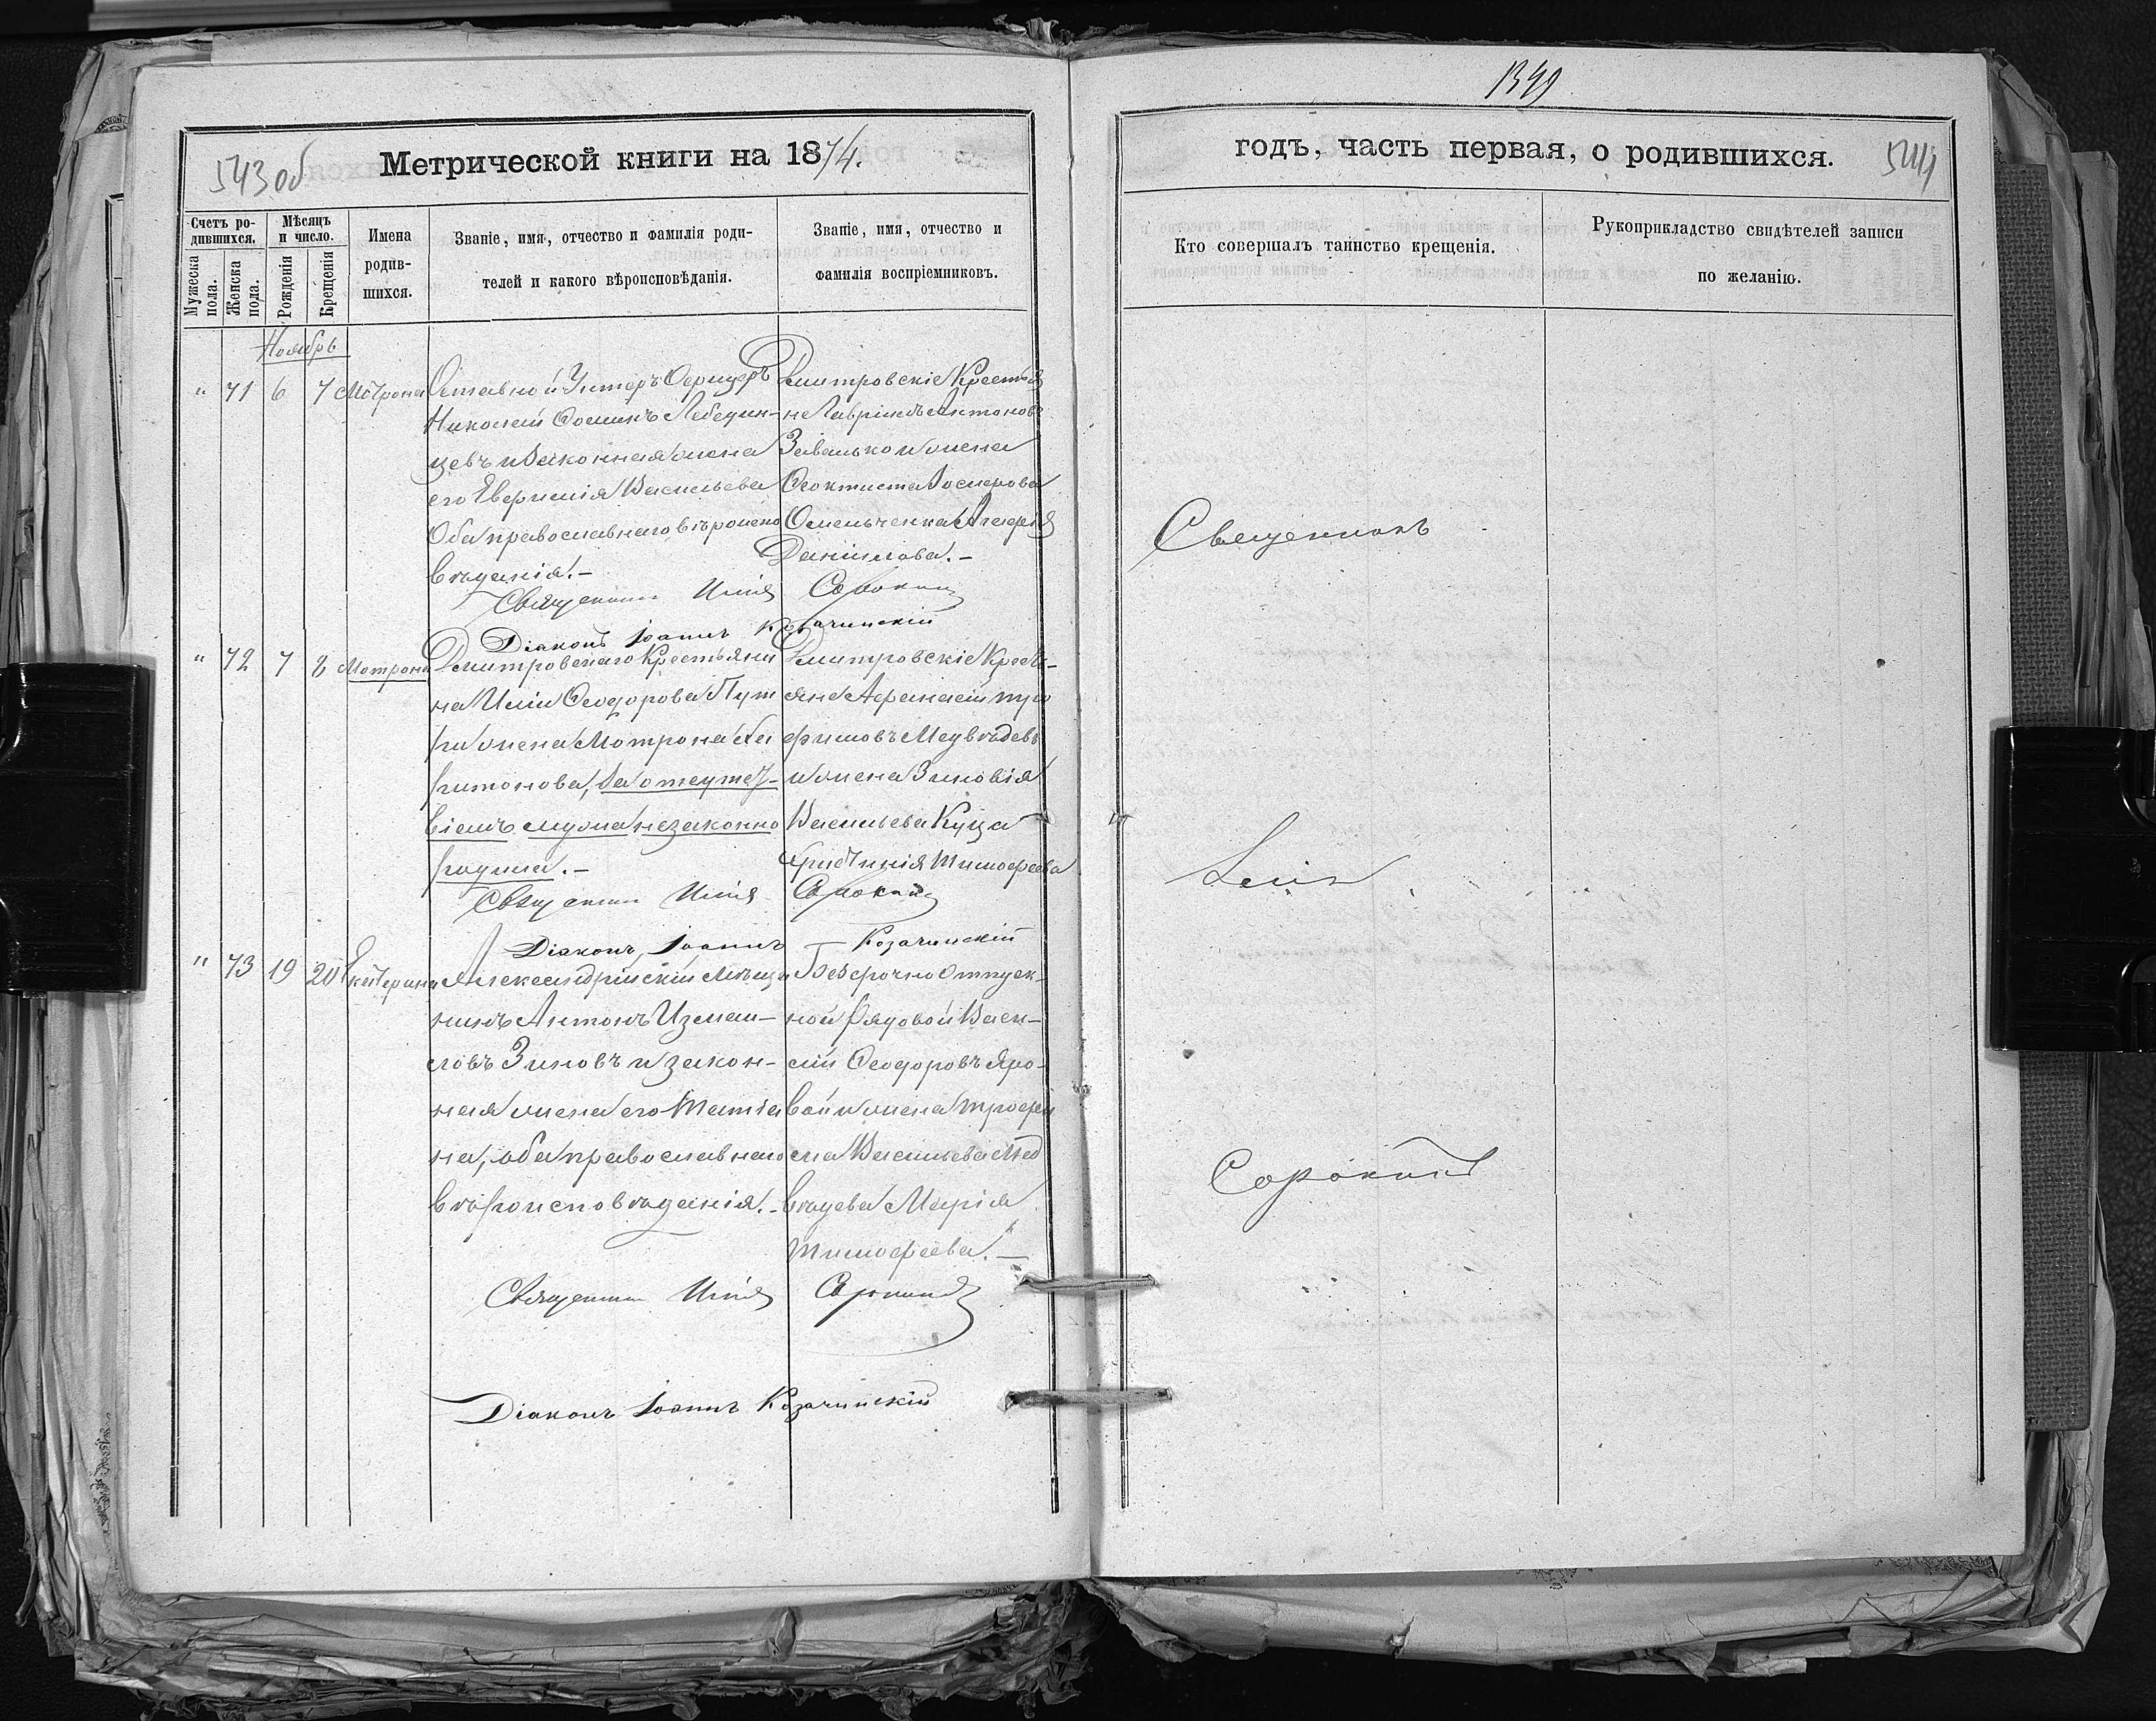 1349
543 об
Метрической книги на 1874.
годъ, часть первая, о родившихся.
544
Счетъ ро-
дившихся.
Мужеска
пола.
Женска
пола.
Мѣсяцъ
и число.
Рожденія
Крещенія
Имена
родив-
шихся.
Званіе, имя, отчество и фамилія роди-
телей и какого вѣроисповѣданія.
Званіе, имя, отчество и
фамилія воспріемниковъ.
Кто совершалъ таинство крещенія.
Рукоприкладство свидѣтелей записи
по желанію.
Ноябрь
" 71 6 7 Мотрона
Отставной Унтеръ Офицеръ
Николай Фоминъ Лебедин-
цевъ и Законная жена
его Евфимія Васильева
Оба православнаго вѣроиспо
вѣданія. –
Дмитровскіе Крестья
не Антоновъ
и жена
Феоктиста
Даніилова. –
Священникъ Илія Сорокинъ
Діаконъ Іоаннъ Козачинскій
" 72 7 8 Мотрона
Дмитровскаго Крестьяни
на Иліи Феодорова
жена Мотрона Ха
ритонова, за отсутст-
віемъ мужа незаконно
родила. –
Дмитровскіе Кресть-
яне Афанасій Тро
фимовъ Медвѣдевъ
и жена Зиновія
Васильева Куца
Христинія Тимофеева
Священникъ Илія Сорокинъ
Діаконъ Іоаннъ Козачинскій
" 73 19 20 Екатерина
Александрійскій Мѣща
нинъ Антонъ Измаи-
ловъ Зиновъ и закон-
ная жена его Татіа
на, оба православнаго
вѣроисповѣданія. –
Безсрочно Отпуск-
ной Рядовой Васи-
лій Феодоровъ Яро-
вой и жена Трофи
ма Васильева Мед
вѣдева Марія
Тимофеева. –
Священникъ Илія Сорокинъ
Діаконъ Іоаннъ Козачинскій
Священникъ
Илія
Сорокинъ